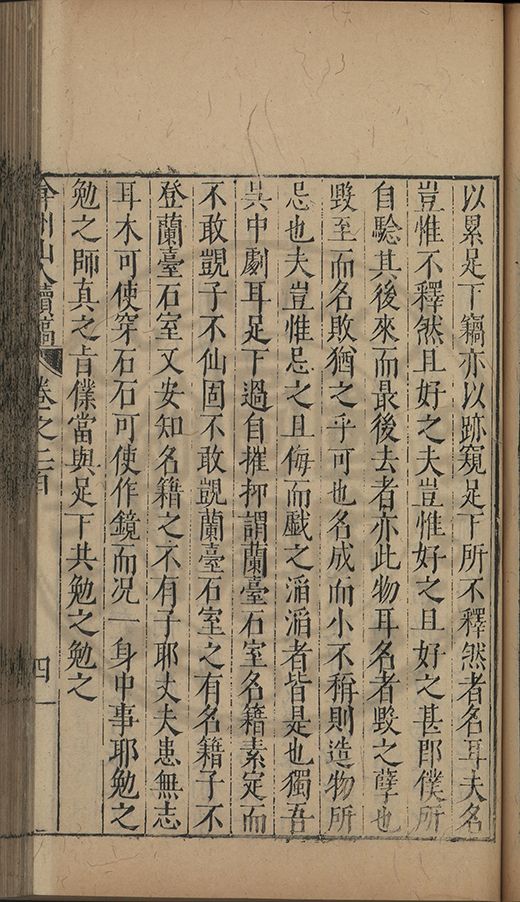 以累足下竊亦以跡窺足下所不釋然者名耳夫名
豈惟不釋然且好之夫豈惟好之且好之甚即僕所
自驗其後來而最後去者亦此物耳名者毀之孽也
毀至而名敗猶之乎可也名成而小不稱則造物所
忌也夫豈惟忌之且侮而戲之滔滔者皆是也獨吾
與中劇耳足下過自摧抑謂蘭臺石室名籍素定而
不敢覬子不仙固不敢覬蘭臺石室之有名籍子不
登蘭臺石室又安知名籍之不有子耶丈夫患無志
耳木可使穿石石可使作鏡而况一身中事耶勉之
勉之師真之旨僕當與足下共勉之勉之
弇州山人續稿 卷之二百 四